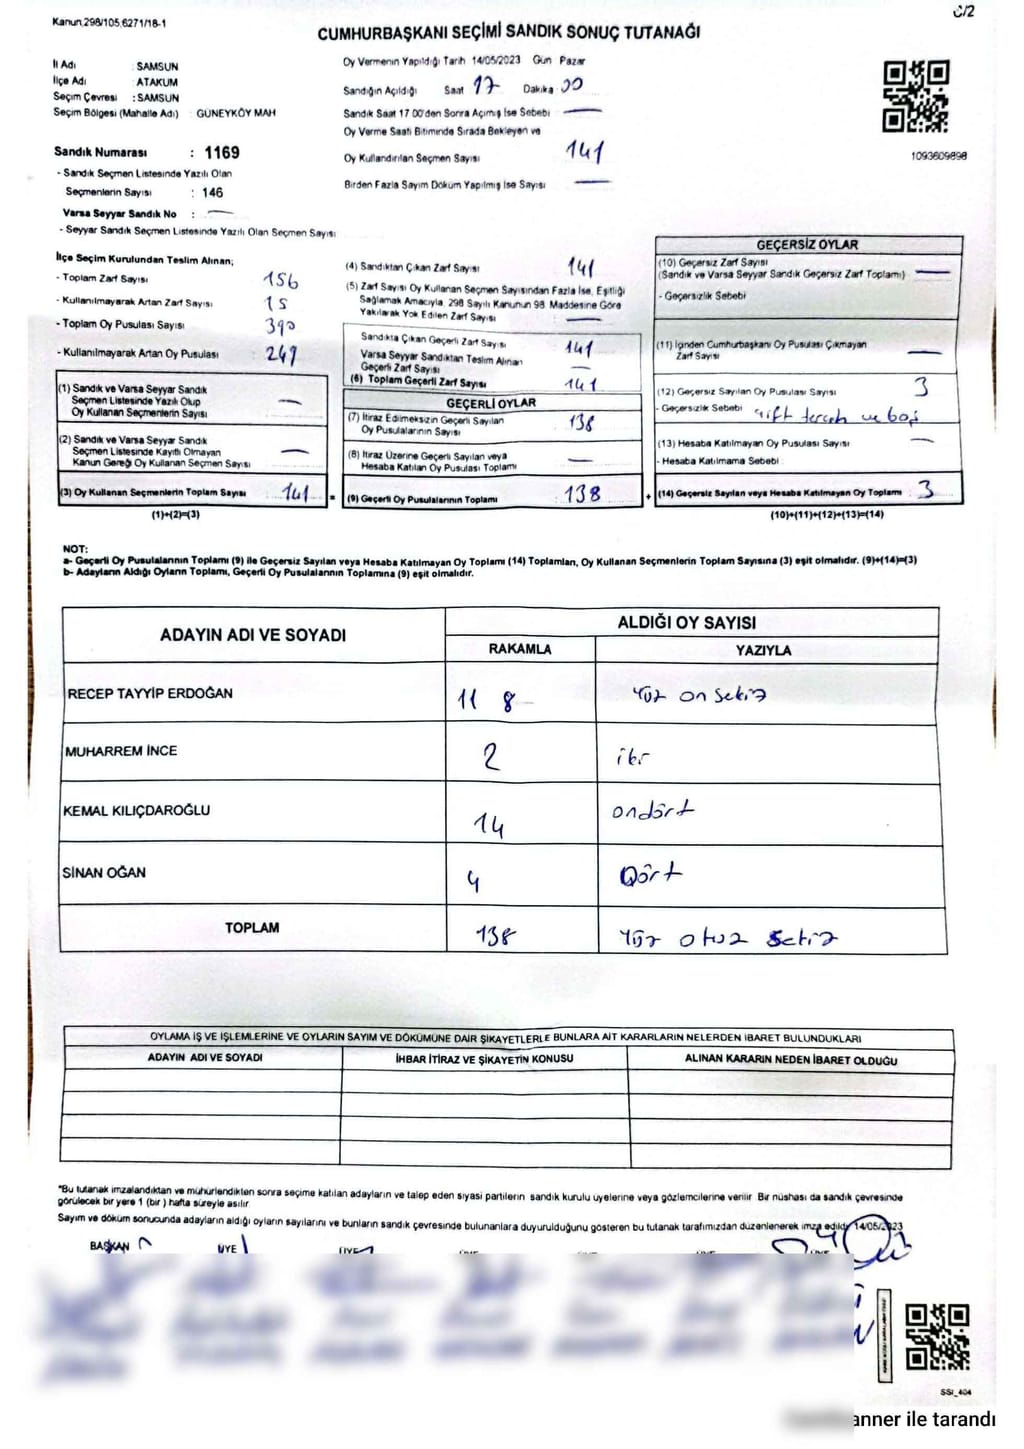 Kanun,298/105,6271/18-1
C/2
CUMHURBAŞKANI SEÇİMİ SANDIK SONUÇ TUTANAĞI
İl Adı : SAMSUN
İlçe Adı : ATAKUM
Seçim Çevresi : SAMSUN
Seçim Bölgesi (Mahalle Adı) : GÜNEYKÖY MAH
Sandık Numarası : 1169
- Sandık Seçmen Listesinde Yazılı Olan
Seçmenlerin Sayısı : 146
Varsa Seyyar Sandık No : —
- Seyyar Sandık Seçmen Listesinde Yazılı Olan Seçmen Sayısı
Oy Vermenin Yapıldığı Tarih 14/05/2023 Gün Pazar
Sandığın Açıldığı Saat 17 Dakika 00
Sandık Saat 17 00'den Sonra Açımış İse Sebebi —
Oy Verme Saati Bitiminde Sırada Bekleyen ve
Oy Kullandırılan Seçmen Sayısı 141
Birden Fazla Sayım Döküm Yapılmış İse Sayısı —
1093609898
İlçe Seçim Kurulundan Teslim Alınan;
- Toplam Zarf Sayısı 156
- Kullanılmayarak Artan Zarf Sayısı : 15
- Toplam Oy Pusulası Sayısı : 390
- Kullanılmayarak Artan Oy Pusulası : 249
(1) Sandık ve Varsa Seyyar Sandık
Seçmen Listesinde Yazılı Olup
Oy Kullanan Seçmenlerin Sayısı —
(2) Sandık ve Varsa Seyyar Sandık
Seçmen Listesinde Kayıtlı Olmayan
Kanun Gereği Oy Kullanan Seçmen Sayısı —
(3) Oy Kullanan Seçmenlerin Toplam Sayısı : 141 =
(1)+(2)=(3)
(4) Sandıktan Çıkan Zarf Sayısı 141
(5) Zarf Sayısı Oy Kullanan Seçmen Sayısından Fazla İse, Eşitliği
Sağlamak Amacıyla, 298 Sayılı Kanunun 98 Maddesine Göre
Yakılarak Yok Edilen Zarf Sayısı —
Sandıkta Çıkan Geçerli Zarf Sayısı 141
Varsa Seyyar Sandıktan Teslim Alınan
Geçerli Zarf Sayısı —
(6) Toplam Geçerli Zarf Sayısı 141
GEÇERLİ OYLAR
(7) İtiraz Edilmeksizin Geçerli Sayılan
Oy Pusulalarının Sayısı 138
(8) İtiraz Üzerine Geçerli Sayılan veya
Hesaba Katılan Oy Pusulası Toplamı —
(9) Geçerli Oy Pusulalarının Toplamı 138 +
GEÇERSİZ OYLAR
(10) Geçersiz Zarf Sayısı
(Sandık ve Varsa Seyyar Sandık Geçersiz Zarf Toplamı) —
- Geçersizlik Sebebi
(11) İçinden Cumhurbaşkanı Oy Pusulası Çıkmayan
Zarf Sayısı —
(12) Geçersiz Sayılan Oy Pusulası Sayısı 3
- Geçersizlik Sebebi çift tercih ve boş
(13) Hesaba Katılmayan Oy Pusulası Sayısı —
- Hesaba Katılmama Sebebi
(14) Geçersiz Sayılan veya Hesaba Katılmayan Oy Toplamı : 3
(10)+(11)+(12)+(13)=(14)
NOT:
a- Geçerli Oy Pusulalarının Toplamı (9) ile Geçersiz Sayılan veya Hesaba Katılmayan Oy Toplamı (14) Toplamları, Oy Kullanan Seçmenlerin Toplam Sayısına (3) eşit olmalıdır. (9)+(14)=(3)
b- Adayların Aldığı Oyların Toplamı, Geçerli Oy Pusulalarının Toplamına (9) eşit olmalıdır.
ADAYIN ADI VE SOYADI
ALDIĞI OY SAYISI
RAKAMLA YAZIYLA
RECEP TAYYİP ERDOĞAN 118 Yüz on sekiz
MUHARREM İNCE 2 iki
KEMAL KILIÇDAROĞLU 14 ondört
SİNAN OĞAN 4 Dört
TOPLAM 138 Yüz otuz sekiz
OYLAMA İŞ VE İŞLEMLERİNE VE OYLARIN SAYIM VE DÖKÜMÜNE DAİR ŞİKAYETLERLE BUNLARA AİT KARARLARIN NELERDEN İBARET BULUNDUKLARI
ADAYIN ADI VE SOYADI İHBAR İTİRAZ VE ŞİKAYETİN KONUSU ALINAN KARARIN NEDEN İBARET OLDUĞU
*Bu tutanak imzalandıktan ve mühürlendikten sonra seçime katılan adayların ve talep eden siyasi partilerin sandık kurulu üyelerine veya gözlemcilerine verilir Bir nüshası da sandık çevresinde
görülecek bir yere 1 (bir) hafta süreyle asılır
Sayım ve döküm sonucunda adayların aldığı oyların sayılarını ve bunların sandık çevresinde bulunanlara duyurulduğunu gösteren bu tutanak tarafımızdan düzenlenerek imza edildi 14/05/2023
BAŞKAN ÜYE ÜYE
SSI_404
anner ile tarandı